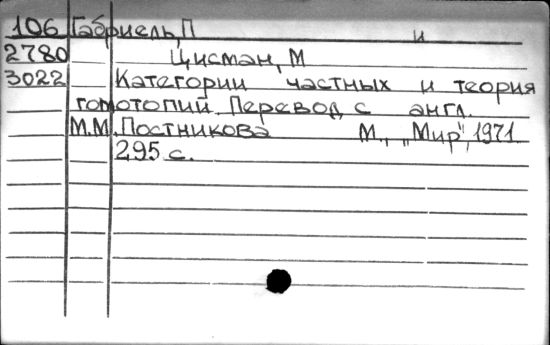 106 Габриель, П и
2780 Цисман, М
3022 Категории частных и теория
гомотопий. Перевод с англ.
М.М. Постникова М., "Мир", 1971.
295 с.